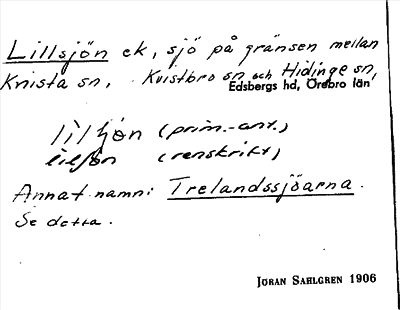 Lillsjön ek, sjö på gränsen mellan
Knista sn, Kvistbro sn och Hidinge sn,
Edsbergs hd, Örebro län
lilʃön (prim.-ant.)
lilʃön (renskrift)
Annat namn: Trelandssjöarna.
Se detta.
JÖRAN SAHLGREN 1906